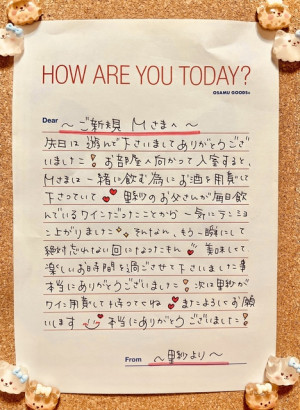 HOW ARE YOU TODAY?
OSAMU GOODS®
Dear ～ご新規 Mさまへ～
先日は遊んで下さいましてありがとうござ
いました❣
お部屋へ向かって入室すると、
Mさまは一緒に飲む為にお酒を用意して
下さっていて💕
里紗のお父さんが毎日飲
んでいるワインだったことから一気にテンショ
ン上がりました✨
もう一瞬にして
絶対忘れない回になったもん
美味しくて
楽しいお時間を過ごさせて下さいました事
本当にありがとうございました❣
次は里紗が
ワイン用意して待ってるね
またよろしくお願
いします
本当にありがとうございました❣
From ～里紗より～